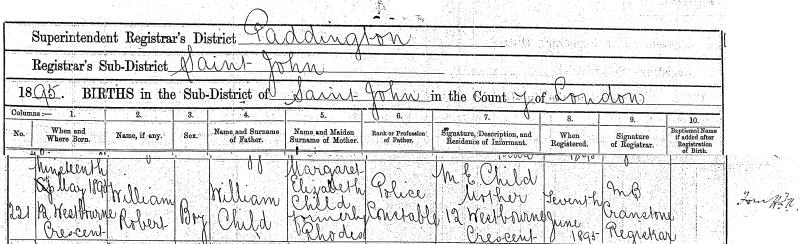 Superintendent Registrar's District Paddington
Registrar's Sub-District Saint John
1895. BIRTHS in the Sub-District of Saint John in the County of London
Columns:— 1. 2. 3. 4. 5. 6. 7. 8. 9. 10.
No. When and Where Born. Name, if any. Sex. Name and Surname of Father. Name and Maiden Surname of Mother. Rank or Profession of Father. Signature, Description, and Residence of Informant. When Registered. Signature of Registrar. Baptismal Name if added after Registration of Birth.
221 Nineteenth of May 1895 12 Westbourne Crescent William Robert Boy William Child Margaret Elizabeth Child formerly Rhodes Police Constable M. E. Child Mother 12 Westbourne Crescent Seventh June 1895 Cranstone Registrar